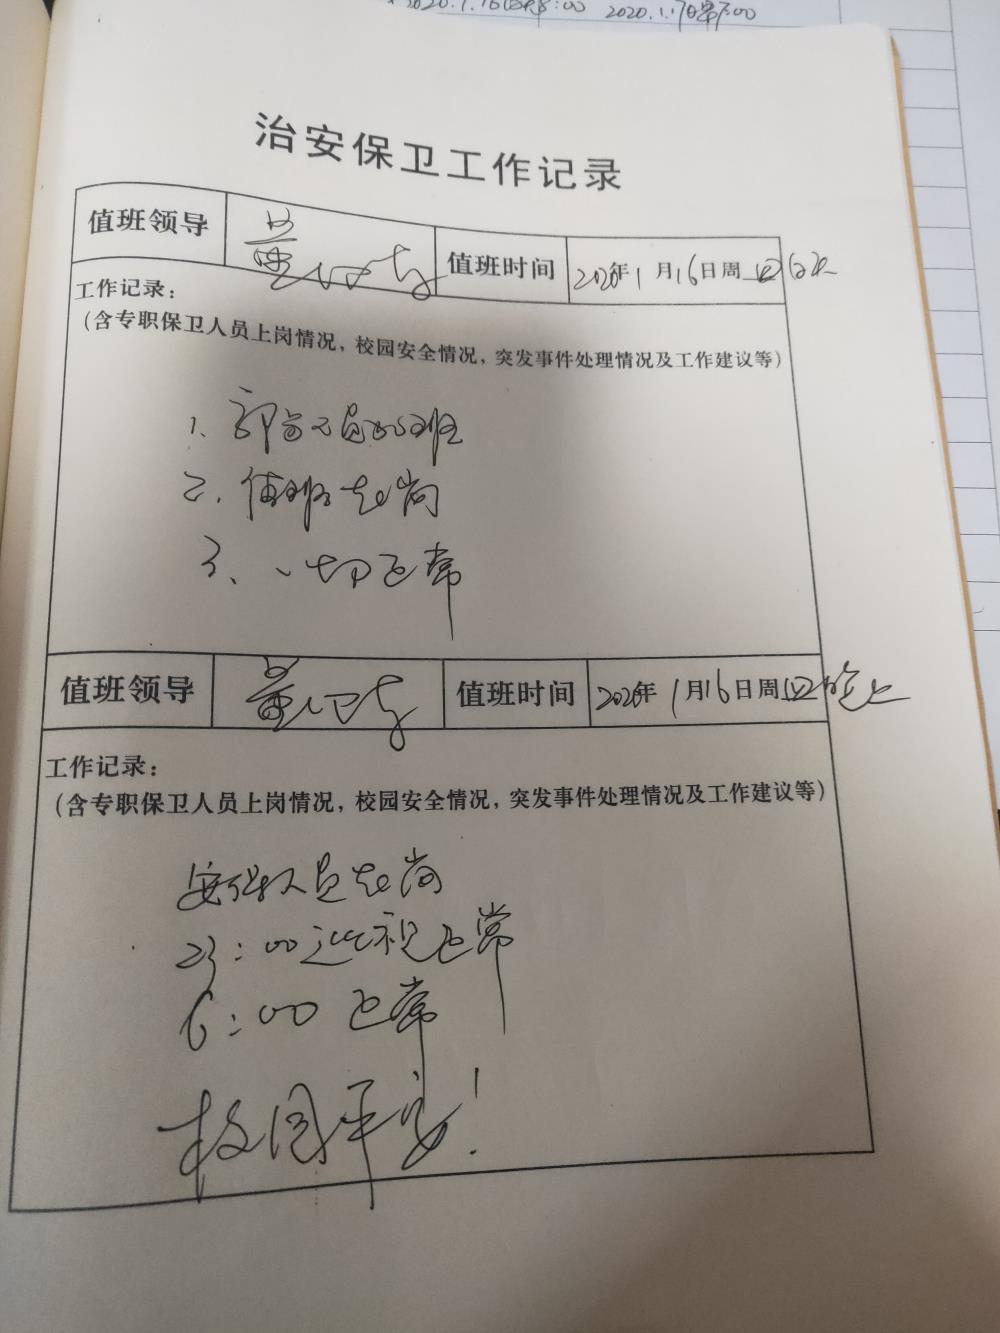 治安保卫工作记录
值班领导 董 值班时间 2020年1月16日周四白天
工作记录：
（含专职保卫人员上岗情况，校园安全情况，突发事件处理情况及工作建议等）
1、值班
2、值班在岗
3、一切正常
值班领导 董 值班时间 2020年1月16日周四晚上
工作记录：
（含专职保卫人员上岗情况，校园安全情况，突发事件处理情况及工作建议等）
安保人员在岗
23：00巡视正常
6：00 正常
校园平安！